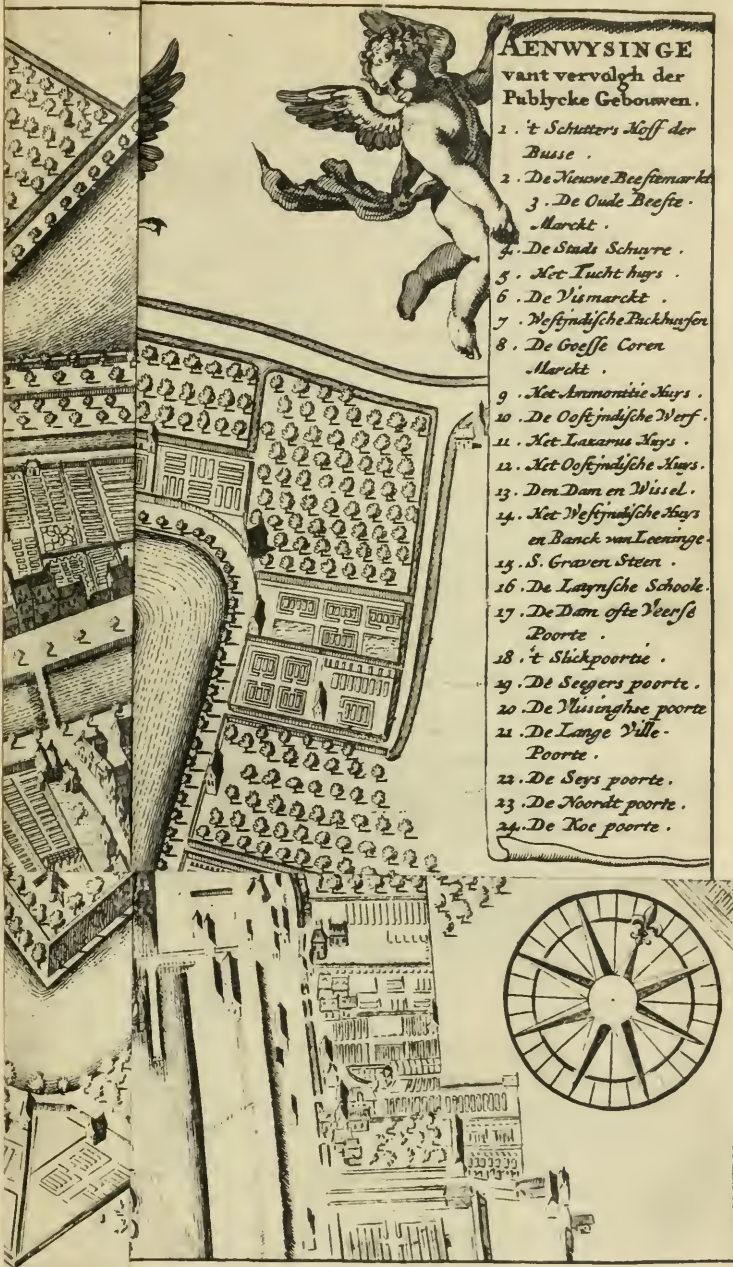 AENWYSINGE
vant vervolgh der
Publycke Gebouwen.
1. 't Schutters Hoff der
Busse.
2. De Nieuwe Beestemarkt
3. De Oude Beeste-
Marckt.
4. De Stads Schuyre.
5. Het Tucht huys.
6. De Vismarckt.
7 Westjndische Packhuysen
8. De Goesse Coren
Marckt.
9 Het Ammonitie Huys.
10 De Oostjndische Werf.
11. Het Lazarus Huys.
12. Het Oostjndische Huys.
13. Den Dam en Wissel.
14. Het Westjndische Huys
en Banck van Leeninge.
15. S. Graven Steen.
16. De Latynsche Schoole.
17. De Dam ofte Veerse
Poorte.
18. 't Slickpoortie.
19. De Seegers poorte.
20. De Vlissinghse poorte
21. De Lange Ville-
Poorte.
22. De Seys poorte.
23. De Noordt poorte.
24. De Koe poorte.